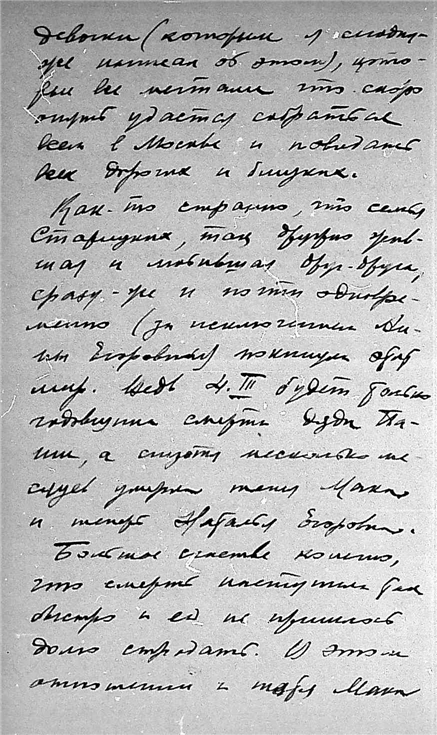 девочки (которым я сегодня-
же написал об этом), кото-
рые все мечтали что скоро
опять удастся собраться
всем в Москве и повидать
всех дорогих и близких.
Как-то странно, что семья
Старицких, так дружно жив-
шая и любившая друг-друга,
сразу-же и почти одновре-
менно (за исключением Ан-
ны Егоровны) покинула этот
мир. Ведь 4.III будет только
годовщина смерти дяди Па-
ши, а спустя несколько ме-
сяцев умерла тетя Мака
и теперь Наталья Егоровна.
Большое счастье конечно,
что смерть наступила так
быстро и ей не пришлось
долго страдать. В этом
отношении и тетя Мака